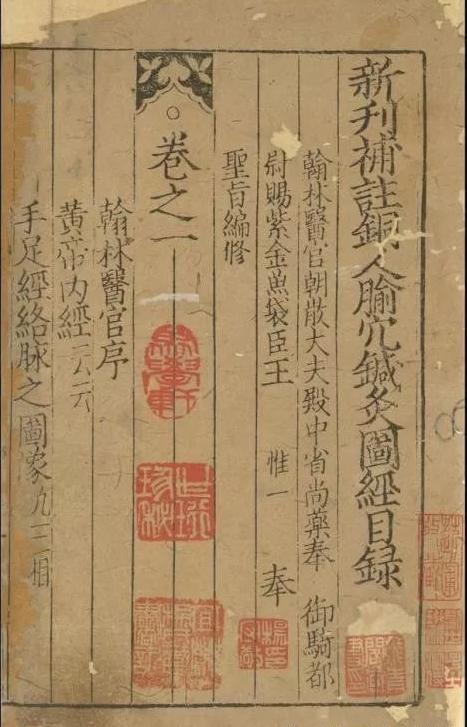 新刊補註銅人腧穴鍼灸圖經目録
翰林醫官朝散大夫殿中省尚藥奉 御騎都
尉賜紫金魚袋臣王 惟一 奉
聖旨編修
卷之一
翰林醫官序
黃帝內經云云
手足經絡脉之圖象凡三相